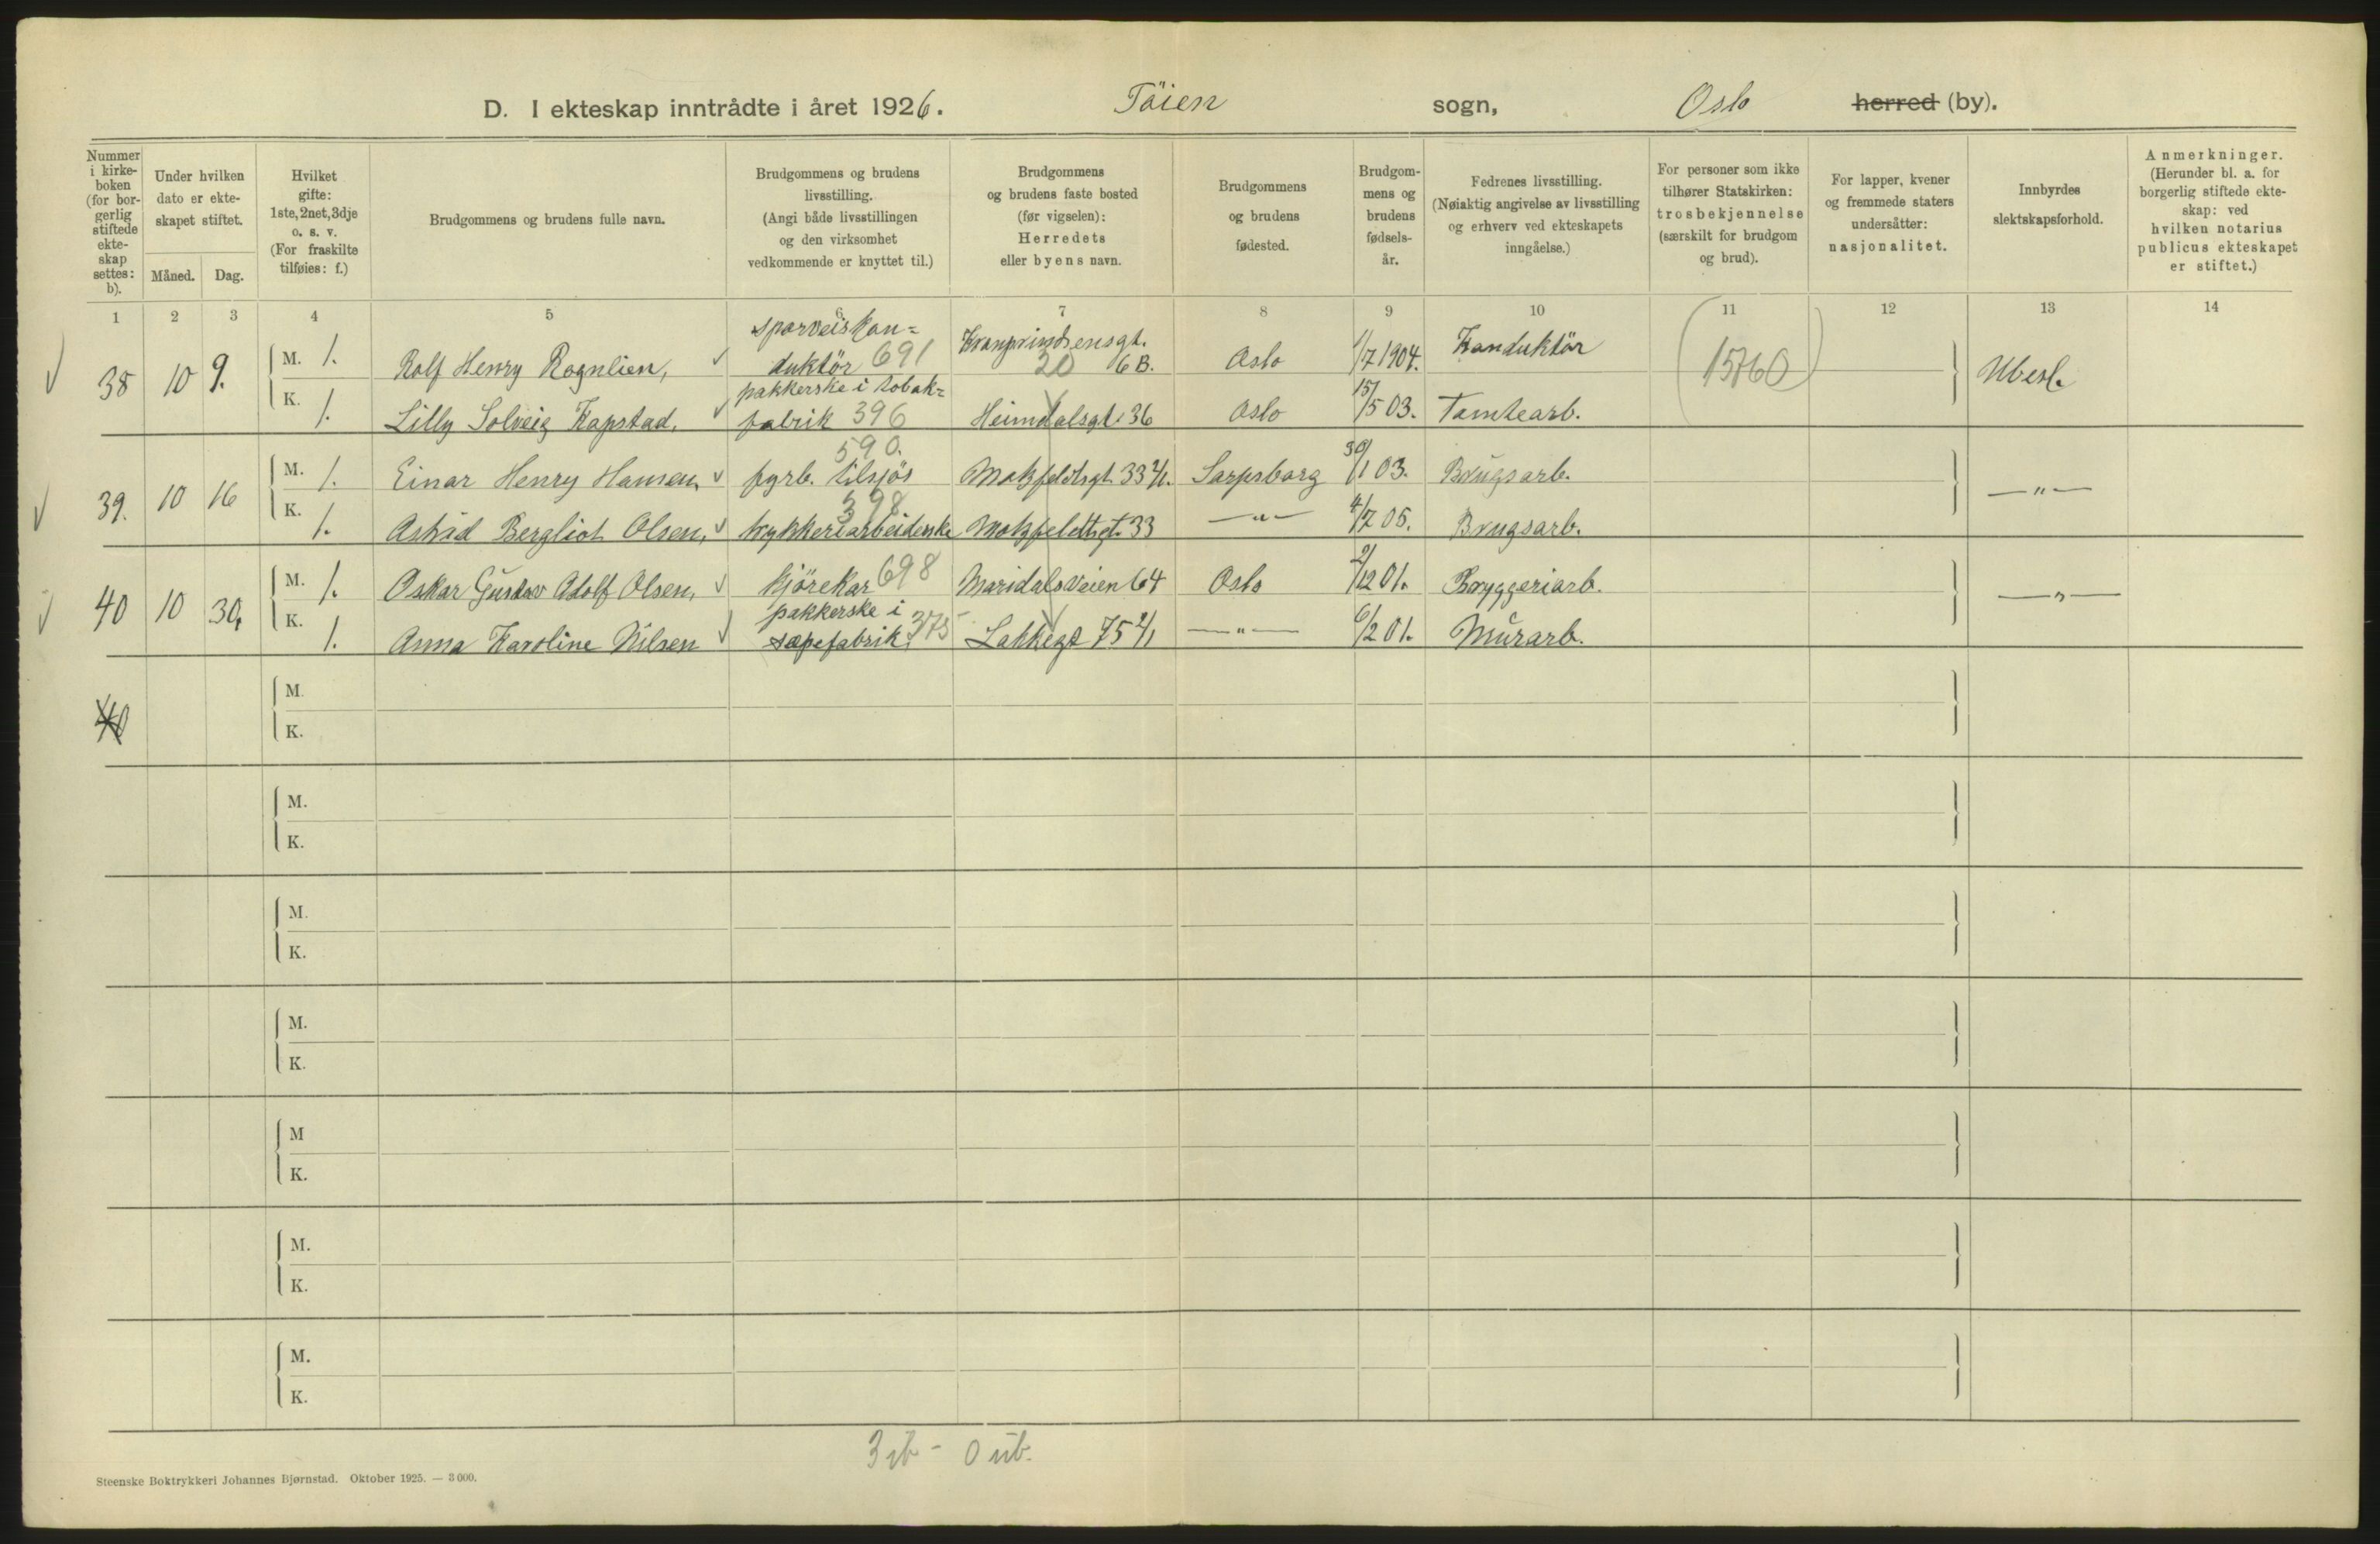 D. I ekteskap inntrådte i året 1926. Töien sogn, Oslo herred (by).
Nummer i kirke-boken (for bor-gerlig stiftede ekte-skap settes: b).
Under hvilken dato er ekte-skapet stiftet.
Måned. Dag.
Hvilket gifte: 1ste, 2net, 3dje o. s. v. (For fraskilte tilføies: f.)
Brudgommens og brudens fulle navn.
Brudgommens og brudens livsstilling. (Angi både livsstillingen og den virksomhet vedkommende er knyttet til.)
Brudgommens og brudens faste bosted (før vigselen): Herredets eller byens navn.
Brudgommens og brudens fødested.
Brudgom-mens og brudens fødsels-år.
Fedrenes livsstilling. (Nøiaktig angivelse av livsstilling og erhverv ved ekteskapets inngåelse.)
For personer som ikke tilhører Statskirken: trosbekjennelse (særskilt for brudgom og brud).
For lapper, kvener og fremmede staters undersåtter: nasjonalitet.
Innbyrdes slektskapsforhold.
Anmerkninger. (Herunder bl. a. for borgerlig stiftede ekte-skap: ved hvilken notarius publicus ekteskapet er stiftet.)
1 2 3 4 5 6 7 8 9 10 11 12 13 14
sporveiskon=
Kronprindsensgt.
38 10 9. M. 1. Rolf Henry Rognlien, duktör 691 20 6 B. Oslo 1/7 1904. Konduktör (15760) Ubesl.
pakkerske i tobak=
K. 1. Lilly Solveig Kapstad, fabrik 396 Heimdalsgt. 36 Oslo 15/5 03. Tomtearb.
590.
39. 10 16 M. 1. Einar Henry Hansen, fyrb. tilsjös Motzfeldtsgt. 33 2/1. Sarpsborg 30/1 03. Brugsarb. — " —
398
K. 1. Astrid Bergliot Olsen, trykkeriarbeiderske Motzfeldtsgt. 33 — " — 4/7 05. Brugsarb.
40 10 30, M. 1. Oskar Gustav Adolf Olsen, kjörekar 698 Maridalsveien 64 Oslo 2/12 01. Bryggeriarb. — " —
pakkerske i
K. 1. Anna Karoline Nilsen sæpefabrik. 375 Lakkegt 75 2/1 — " — 6/2 01. Murarb.
40 M.
K.
M.
K.
M.
K.
M.
K.
M
K.
M.
K.
M.
K.
3 ib - 0 ub.
Steenske Boktrykkeri Johannes Bjørnstad. Oktober 1925. — 3 000.